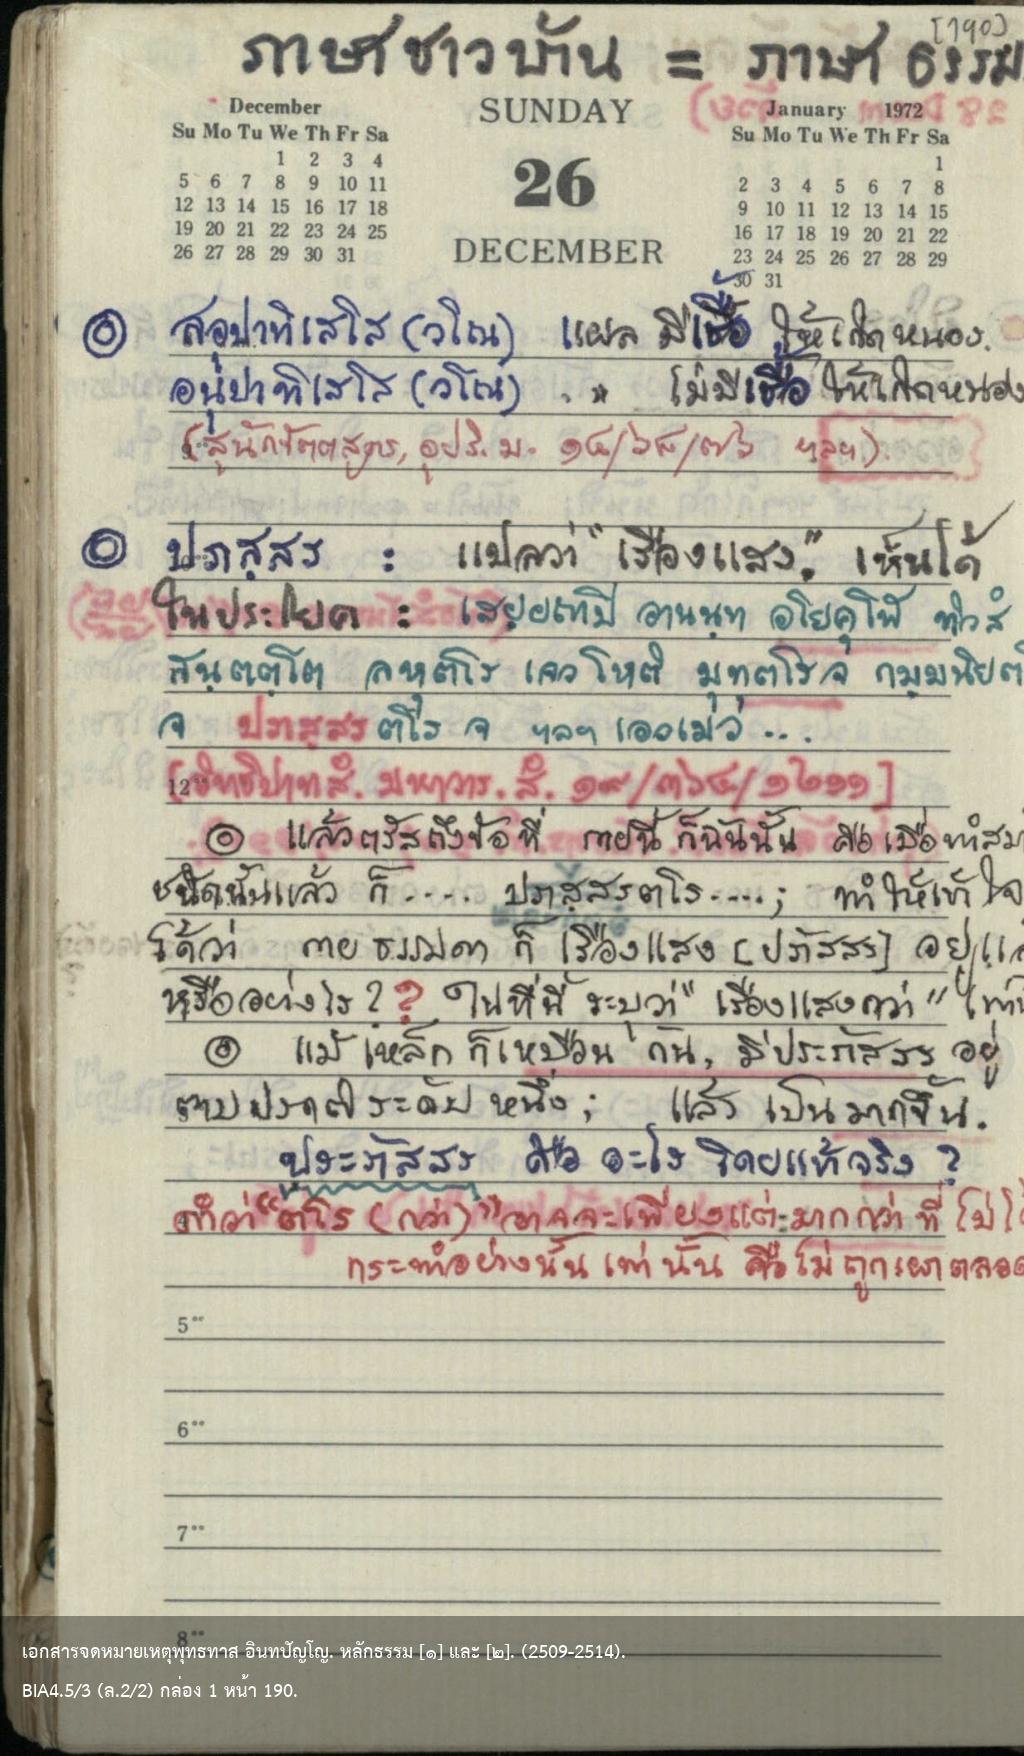 [190]
ภาษาชาวบ้าน = ภาษาธรรม
December
Su Mo Tu We Th Fr Sa
1 2 3 4
5 6 7 8 9 10 11
12 13 14 15 16 17 18
19 20 21 22 23 24 25
26 27 28 29 30 31
SUNDAY
26
DECEMBER
January 1972
Su Mo Tu We Th Fr Sa
1
2 3 4 5 6 7 8
9 10 11 12 13 14 15
16 17 18 19 20 21 22
23 24 25 26 27 28 29
30 31
สอุปาทิเสโส (วโณ) แผล มีเชื้อ ให้เกิดหนอง.
อนุปาทิเสโส (วโณ) . " ไม่มีเชื้อ ให้เกิดหนอง
(สุนักขัตตสูตร, อุปริ. ม. ๑๔/๖๔/๗๖ ฯลฯ).
ปภสฺสร : แปลว่า "เรืองแสง". เห็นได้
ในประโยค : เสยฺยถาปิ อานนฺท อโยคุโฬ ทิวสํ
สนฺตตฺโต ลหุตโร เจว โหติ มุทุตโร จ กมฺมนิยต
จ ปภสฺสรตโร จ ฯลฯ เอวเมว ...
12°° [อิทธิปาทสํ. มหาวาร. สํ. ๑๙/๓๖๔/๑๒๑๑]
แล้วตรัสถึงข้อที่ กายนี้ ก็ฉันนั้น คือ เมื่อทำสมา
ชนิดนั้นแล้ว ก็ .... ปภสฺสรตโร....; ทำให้เข้าใจ
ได้ว่า กายธรรมดา ก็ เรืองแสง [ปภัสสร] อยู่แล้ว
หรืออย่างไร ? ? ในที่นี้ ระบุว่า "เรืองแสงกว่า" เท่านั้น
แม้เหล็ก ก็เหมือนกัน, มีประภัสสร อยู่
ตามปรกติระดับหนึ่ง; แล้ว เป็นมากขึ้น.
ประภัสสร คือ อะไร โดยแท้จริง ?
คำว่า "ตโร (กว่า)" อาจจะเพียงแต่มากกว่าที่ ไม่ได้
กระทำอย่างนั้น เท่านั้น คือไม่ถูกเผาตลอด
5°°
6°°
7°°
8°°
เอกสารจดหมายเหตุพุทธทาส อินทปัญโญ. หลักธรรม [๑] และ [๒]. (2509-2514).
BIA4.5/3 (ล.2/2) กล่อง 1 หน้า 190.